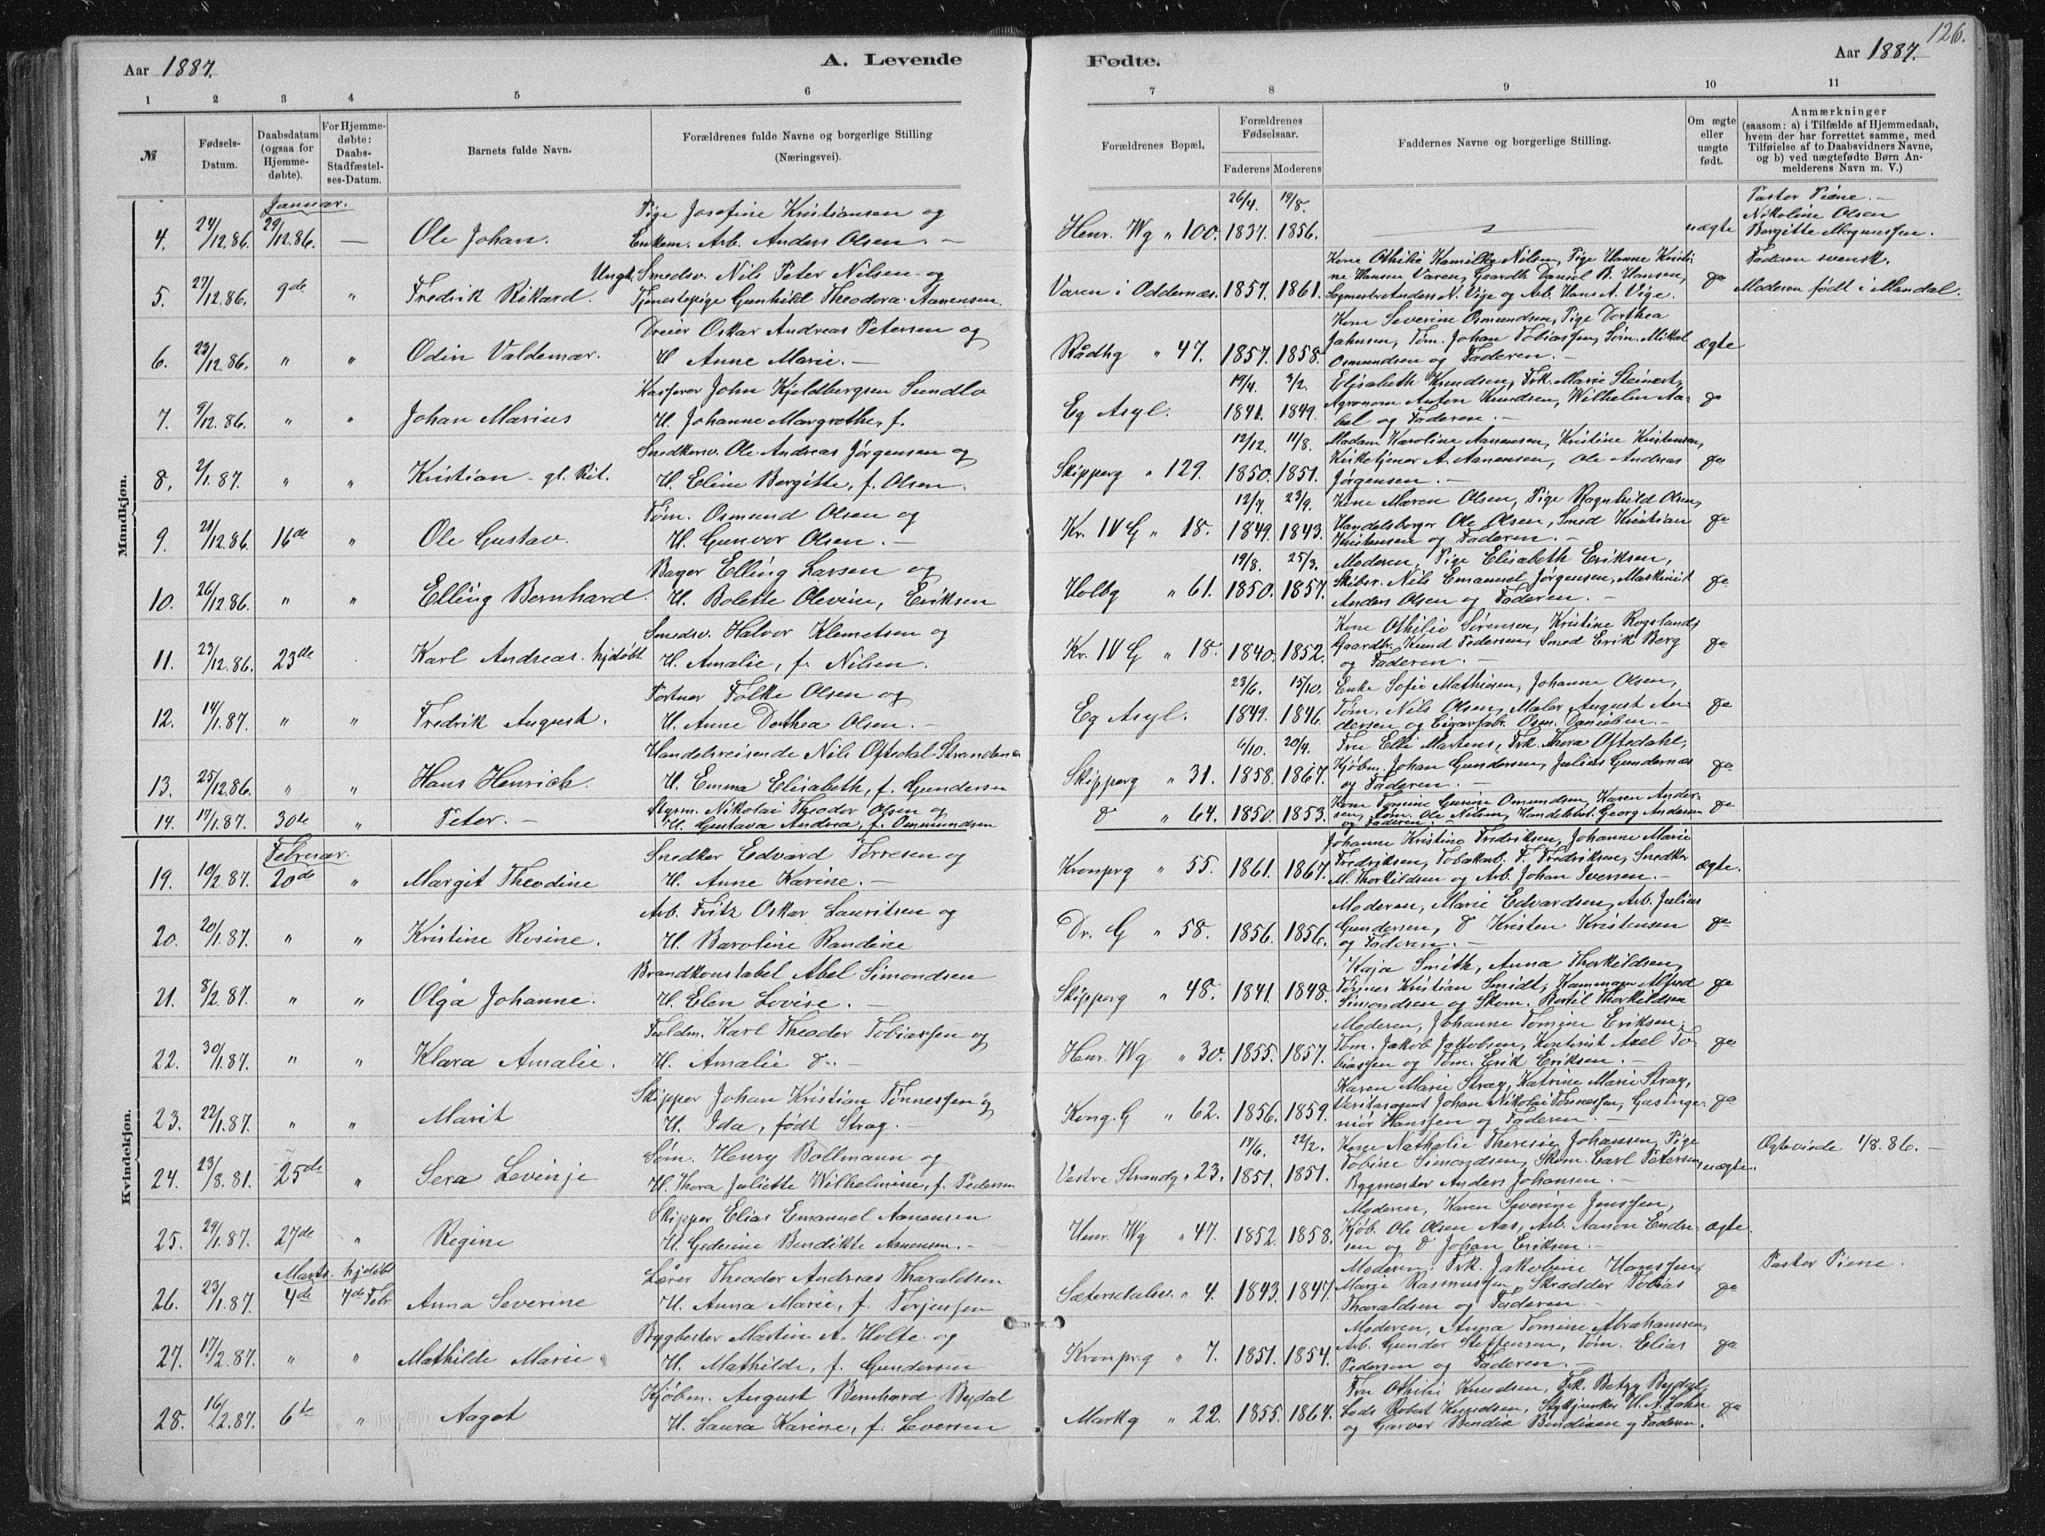 126.
Aar 1887.
A. Levende
Fødte.
Aar 1887.
1 2 3 4 5 6 7 8 9 10 11
№
Fødsels-Datum.
Daabsdatum (ogsaa for Hjemmedøbte).
For Hjemmedøbte: Daabs-Stadfæstelses-Datum.
Barnets fulde Navn.
Forældrenes fulde Navne og borgerlige Stilling (Næringsvei).
Forældrenes Bopæl.
Forældrenes Fødselsaar.
Faderens Moderens
Faddernes Navne og borgerlige Stilling.
Om ægte eller uægte født.
Anmærkninger (saasom: a) i Tilfælde af Hjemmedaab, hvem der har forrettet samme, med Tilføielse af to Daabsvidners Navne, og b) ved uægtefødte Børn Anmelderens Navn m. V.)
Mandkjøn.
Januar.
4. 24/12.86. 29/12.86. — Ole Johan.
Pige Josefine Kristiansen og
Enkem. Arb. Anders Olsen. —
Henr. Wg „ 100. 26/4. 1837. 19/8. 1856.
uægte
Pastor Piene. —
Nikoline Olsen
Bergitte Magnussen.
5. 27/12.86. 9de „ Fredrik Rikard.
Ungk. Smedsv. Nils Peter Nilsen og
Tjenestepige Gunhild Theodora Aanensen.
Varen i Oddernæs. 1857. 1861.
Kone Othilie Kamilla Nilsen, Pige Hanne Kristi-
ne Hansen Varen, Gaardb. Daniel B. Hansen,
Sagmester Anders N. Vige og Arb. Hans A. Vige.
do
Faderen svensk.
Moderen født i Mandal.
6. 23/12.86. „ „ Odin Valdemar.
Dreier Oskar Andreas Petersen og
H. Anne Marie. —
Rådhg „ 47. 1857. 1858.
Kone Severine Osmundsen, Pige Dorthea
Jahnsen, Tøm. Johan Tobiassen, Søm. Mikal
Osmundsen og Faderen. —
ægte
7. 9/12.86. „ „ Johan Marius
Kasserer John Kjeldbergsen Sundlo
H. Johanne Margrethe, f.
Eg Asyl. 19/4. 1841. 3/2. 1849.
Elisabeth Knudsen, Frk. Marie Steinert,
Agronom Anton Knudsen, Wilhelm Aa-
bel og Faderen. —
do
8. 2/1.87. „ „ Kristian gl. Rit.
Snedkersv. Ole Andreas Jørgensen og
H. Eline Bergitte, f. Olsen.
Skipperg „ 129. 12/12. 1850. 11/8. 1851.
Madam Karoline Aanensen, Kristine Kristensen,
Kirketjener A. Aanensen, Ole Andreas
Jørgensen. —
do
9. 21/12.86. 16de „ Ole Gustav.
Tøm. Osmund Olsen og
H. Gunvor Olsen. —
Kr. IV G „ 18. 12/7. 1849. 23/9. 1843.
Kone Maren Olsen, Pige Ragnhild Olsen,
Handelsborger Ole Olsen, Smed Kristian
Kristensen og Faderen. —
do
10. 26/12.86. „ „ Elling Bernhard.
Bager Elling Larsen og
H. Bolette Olevine, Eriksen
Holbg „ 61. 19/8. 1850. 25/3. 1857.
Moderen, Pige Elisabeth Eriksen,
Skibsr. Nils Emanuel Jørgensen, Maskinist
Anders Olsen og Faderen. —
do
11. 23/12.86. 23de . Karl Andreas. hjdøbt
Smedsv. Halvor Klemetsen og
H. Amalie, f. Nilsen.
Kr. IV G „ 18. 1840. 1852.
Kone Othilie Sørensen, Kristine Rogslands
Gaardbr. Knud Pedersen, Smed Erik Berg
og Faderen. —
do
12. 14/1.87. „ „ Fredrik August.
Portner Folke Olsen og
H. Anne Dorthea Olsen. —
Eg Asyl. 23/6. 1849. 15/10. 1846.
Enke Sofie Mathisen, Johanne Olsen,
Tøm. Nils Olsen, Maler August An-
dersen og Cigarfabr. Olsm. Danielsen. —
do
13. 25/12.86. „ „ Hans Henrick.
Handelsreisende Nils Oftedal Strandenæs
H. Emma Elisabeth, f. Gundersen
Skipperg „ 31. 6/10. 1858. 20/4. 1867.
Fru Elli Martens, Frk. Thora Oftedahl,
Kjøbm. Johan Gundersen, Julius Gundersen
og Faderen. —
do
14. 17/1.87. 30te „ Peter. —
Styrm. Nikolai Theodor Olsen og
H. Gustava Andrea, f. Ommundsen
do „ 64. 1850. 1853.
Kone Tomine Gurine Osmundsen, Karen Ander-
sen, Tøm. Ole Nilsen, Handelsbet. Georg Andersen
og Faderen. —
do
Kvindekjøn.
Februar.
19. 10/2.87. 20de „ Margit Theodine
Snedker Edvard Torresen og
H. Anne Karine. —
Kronprg „ 55. 1861. 1867.
Johanne Kristine Fredriksen, Johanne Marie
Fredriksen, Tobaksarb. F. Fredriksen, Snedker
M. Thorkildsen og Arb. Johan Iversen. —
ægte.
20. 20/1.87. „ „ Kristine Rosine.
Arb. Fritz Oskar Lauritsen og
H. Baroline Randine
Dr. G „ 58. 1856. 1856.
Moderen, Marie Edvardsen, Arb. Julius
Gundersen, do Kristen Kristensen
og Faderen. —
do
21. 8/2.87. „ „ Olga Johanne.
Brandkonstabel Abel Simondsen
H. Elen Lovise. —
Skipperg „ 48. 1841. 1848.
Kaja Smith, Anna Thorkildsen,
Tønnes Kristian Smidt, Kammager Alfred
Simondsen og Skom. Bertil Thorkildsen
do
22. 30/1.87. „ „ Klara Amalie.
Fuldm. Karl Theodor Tobiassen og
H. Amalie do. —
Henr. Wg „ 30. 1855. 1857.
Moderen, Johanne Tomine Eriksen,
Tøm. Jakob Jakobsen, Kontorist Axel To-
biassen og Tøm. Erik Eriksen. —
do
23. 22/1.87. „ „ Marit
Skipper Johan Kristian Tønnessen og
H. Ida, født Stray. —
Kong. G „ 62. 1856. 1859.
Karen Marie Stray, Katrine Marie Stray,
Veritasagent Johan Nikolai Tønnessen, Gasinge-
niør Hanssen og Faderen. —
do
24. 23/8.81. 25de „ Sera Levinje
Søm. Henry Bollmann og
H. Thora Juliette Wilhelmine, f. Pedersen
Vestre Strandg „ 23. 17/6. 1851. 22/2. 1851.
Kone Nathalie Theresie Johansen, Pige
Tobine Simondsen, Skom. Carl Petersen,
Bygmester Anders Johansen. —
uægte.
Ægteviede 1/8.86. —
25. 24/1.87. 27de „ Regine
Skipper Elias Emanuel Aanensen
H. Gederine Bendikte Aanensen. —
Henr. Wg „ 47. 1852. 1858.
Moderen, Karen Severine Jenssen,
Kjøb. Ole Olsen Aas, Arb. Aanon Endre-
sen og do Johan Eriksen. —
ægte.
Marts. hjdøbt
26. 23/1.87. 4de 7de Febr Anna Severine
Lærer Theodor Andreas Tharaldsen
H. Anna Marie, f. Torjessen
Sætersdalsv. „ 4. 1843. 1847.
Moderen, Frk. Jakobine Hanssen,
Marie Rasmussen, Skrædder Tobias
Tharaldsen og Faderen. —
do
Pastor Piene.
27. 17/2.87. „ „ Mathilde Marie.
Bygbester Martin A. Holte og
H. Mathilde, f. Gundersen
Kronprg „ 7. 1851. 1854.
Moderen, Anna Tomine Abrahamsen,
Arb. Gunder Steffensen, Tøm. Elias
Pedersen og Faderen. —
do
28. 16/2.87. 6te „ Aagot
Kjøbm. August Bernhard Bydal
H. Laura Karine, f. Leversen
Markg „ 22. 1855. 1864.
Fru Othilie Knudsen, Frk. Betzy Bydal,
Lods Robert Knudsen, H. A. Jahn
og Garver Bendix Bendixen og Faderen.
do